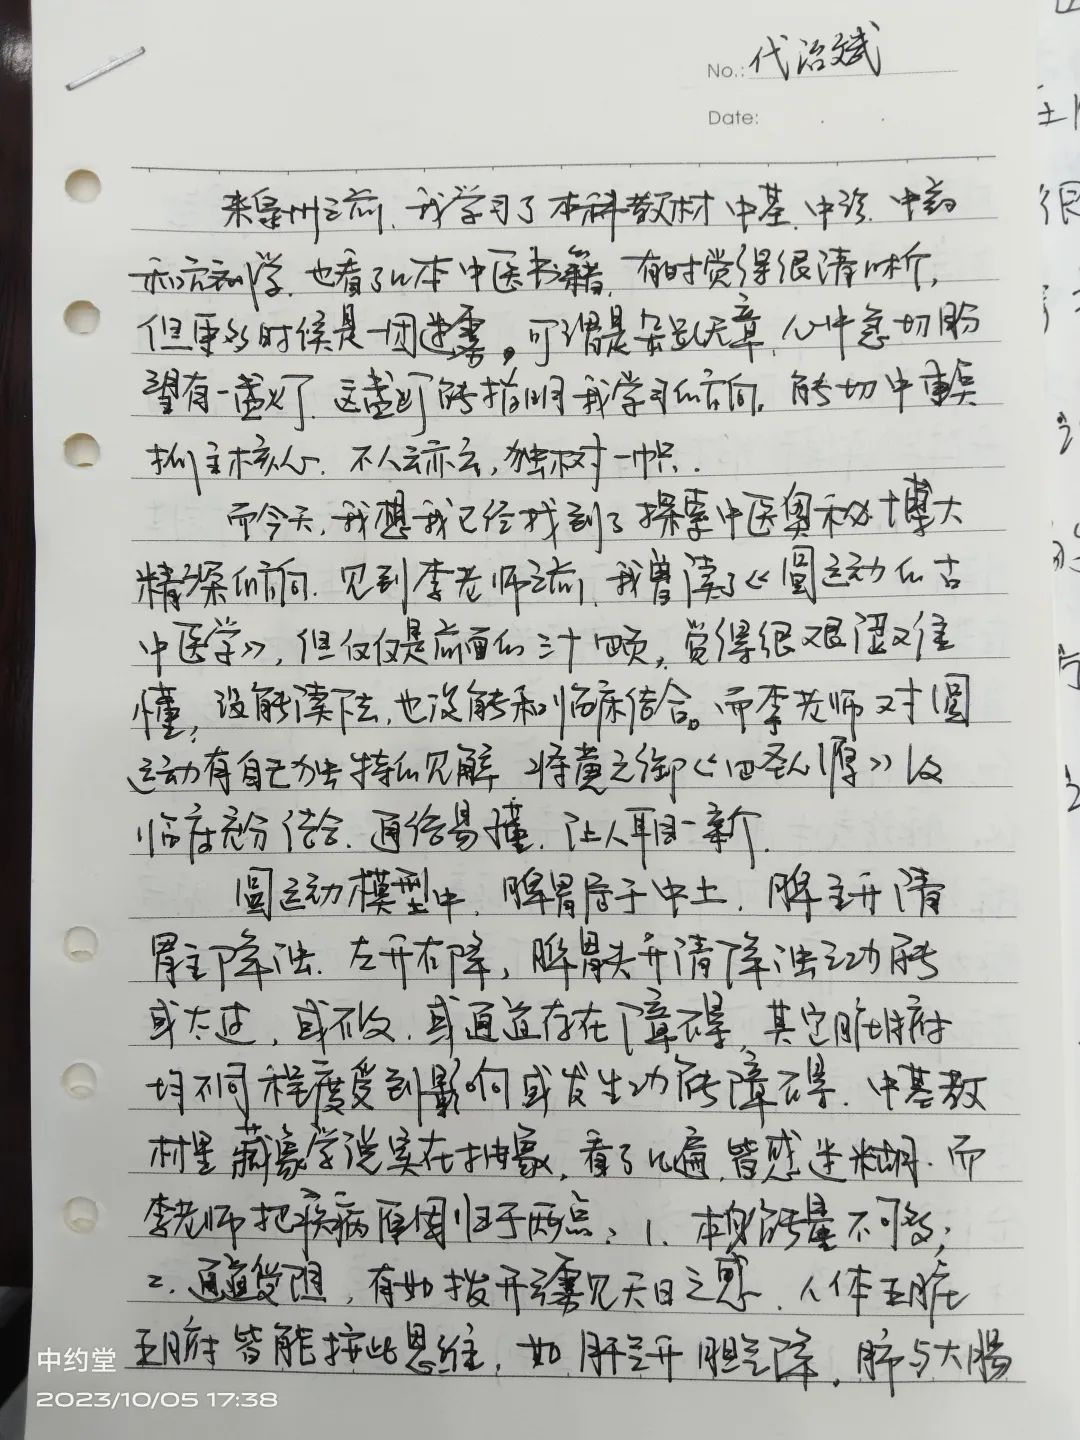 No.: 代治斌
Date:
来泉州之前，我学习了本科教材中基、中诊、中药
和方剂学，也看了几本中医书籍，有时觉得很清晰，
但更多时候是一团迷雾，可谓是杂乱无章，心中急切盼
望有一盏灯，这盏灯能指明我学习的方向，能切中要点
抓主核心，不人云亦云，独树一帜。
而今天，我想我已经找到了探索中医奥秘博大
精深的方向。见到李老师之前，我曾读了《圆运动的古
中医学》，但仅仅是前面的三十四页，觉得很艰涩难
懂，没能读下去，也没能和临床结合。而李老师对圆
运动有自己独特的见解，将黄元御《四圣心源》以及
临床充分结合，通俗易懂，让人耳目一新。
圆运动模型中，脾胃居于中土，脾主升清
胃主降浊，左升右降，脾胃失升清降浊之功能
或太过，或不及，或通道存在障碍，其它脏腑
均不同程度受到影响或发生功能障碍。中基教
材里藏象学说实在抽象，看了几遍，皆感迷糊。而
李老师把疾病原因归于两点：1. 本身能量不够；
2. 通道受阻，有如拨开云雾见天日之感。人体五脏
五腑皆能按此思维，如肝气升胆气降，肺与大肠
中约堂
2023/10/05 17:38